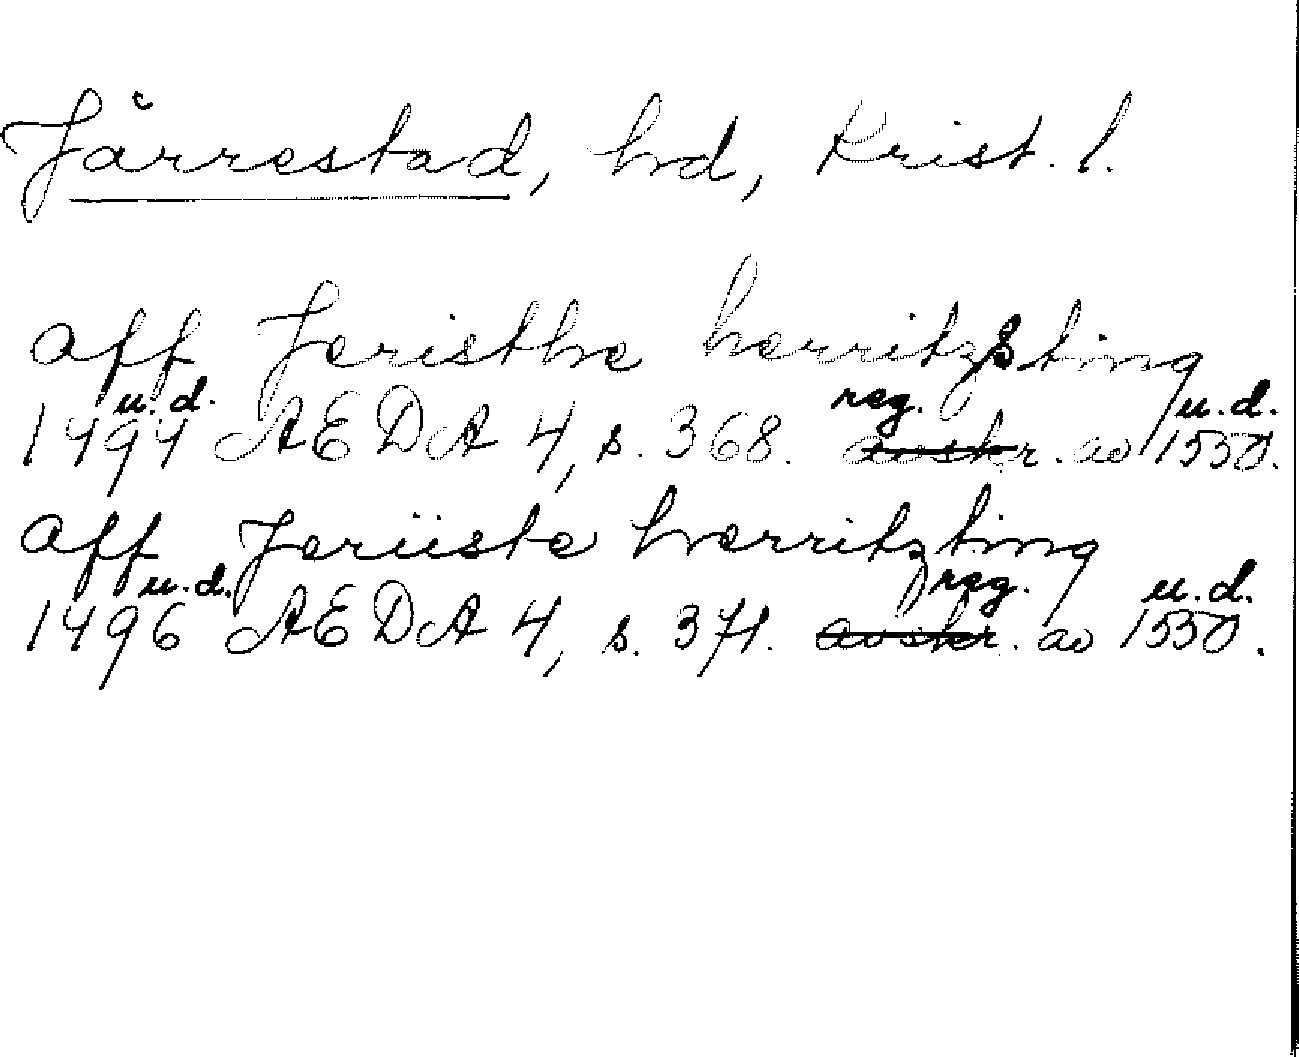 Järrestad, hd, Krist. l.
aff Jeristhe herritzsting
1494 u.d. AEDA 4, s. 368. reg. avskr. av 1550. u.d.
aff Jeriiste herritzting
1496 u.d. AEDA 4, s. 371. reg. avskr. av 1550. u.d.